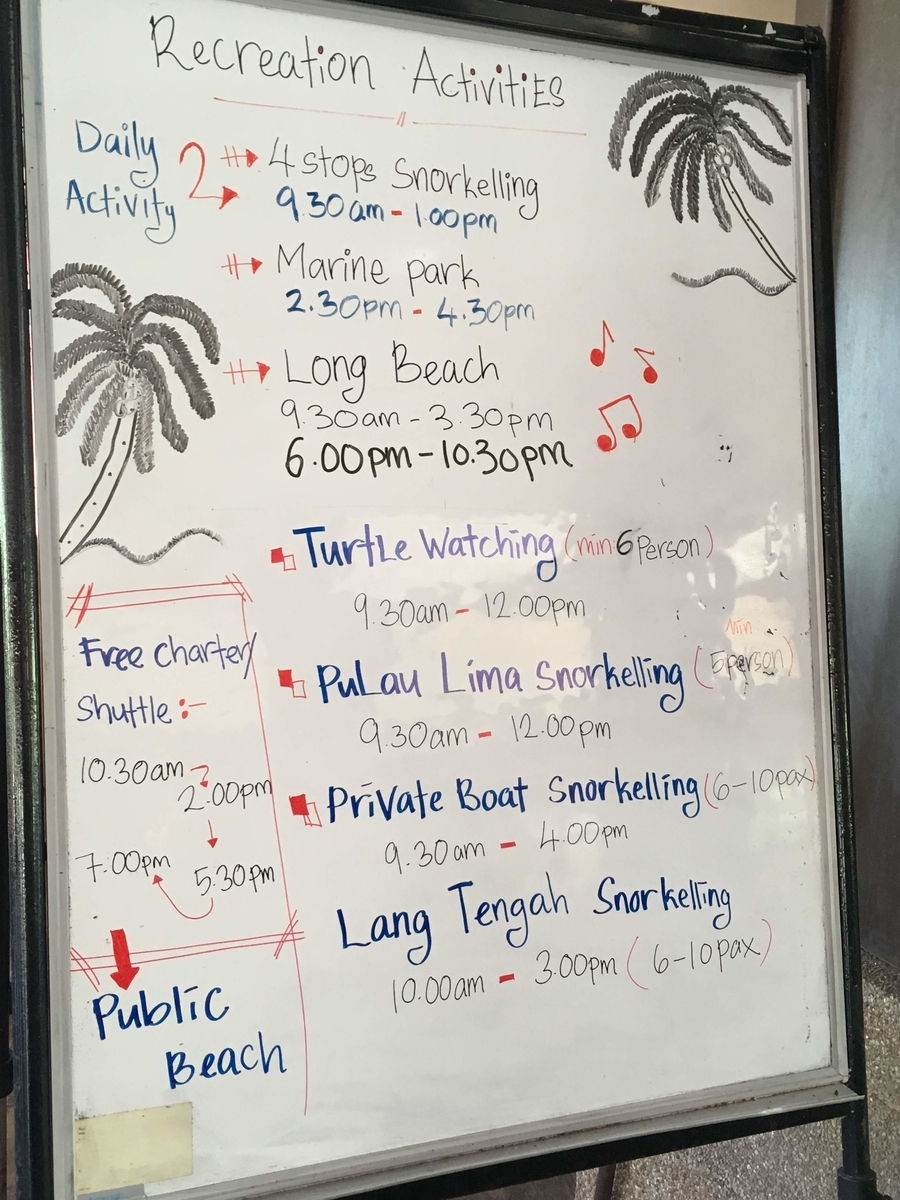 Recreation Activities
Daily
Activity
4 stops Snorkelling
9.30am - 1.00pm
Marine park
2.30pm - 4.30pm
Long Beach
9.30am - 3.30pm
6.00pm - 10.30pm
Turtle Watching (min 6 Person)
9.30am - 12.00pm
Pulau Lima Snorkelling (min 5 person)
9.30am - 12.00pm
Private Boat Snorkelling (6-10pax)
9.30am - 4.00pm
Lang Tengah Snorkelling
10.00am - 3.00pm (6-10pax)
Free Charter/
Shuttle :-
10.30am
2.00pm
5.30pm
7.00pm
Public
Beach